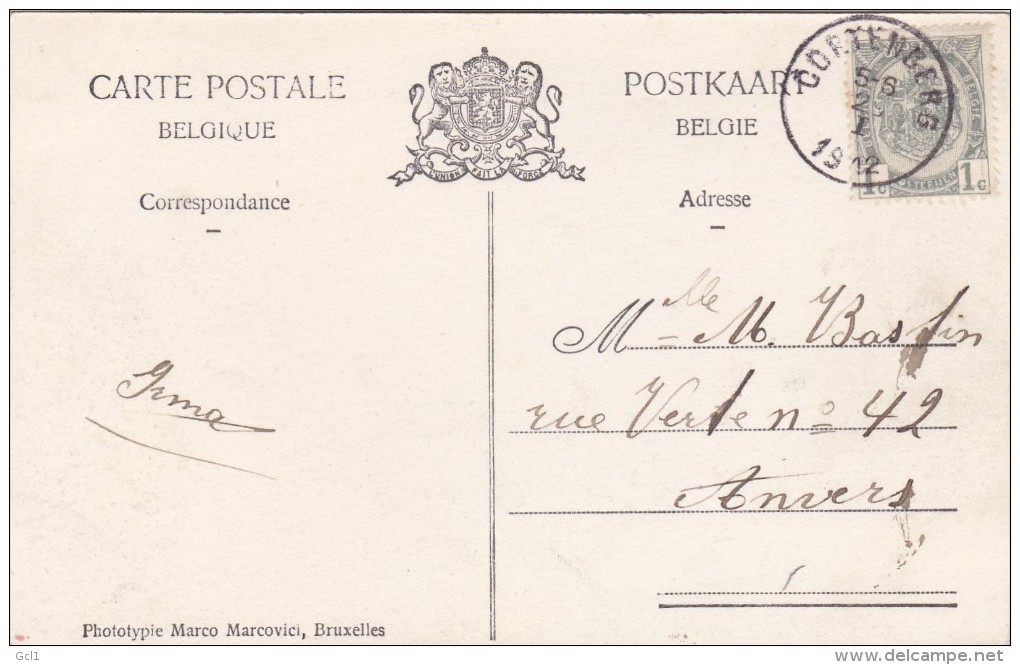 CARTE POSTALE
BELGIQUE
Correspondance
POSTKAART
BELGIE
Adresse
L'UNION FAIT LA FORCE
CORTENBERG
5-6
1912
1c 1c
Mlle M. Bastin
rue Verte no 42
Anvers
Irma
Phototypie Marco Marcovici, Bruxelles
Gcl1
www.delcampe.net